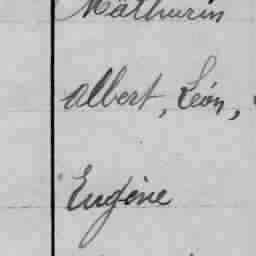 Mathurin
Albert, Léon,
Eugène